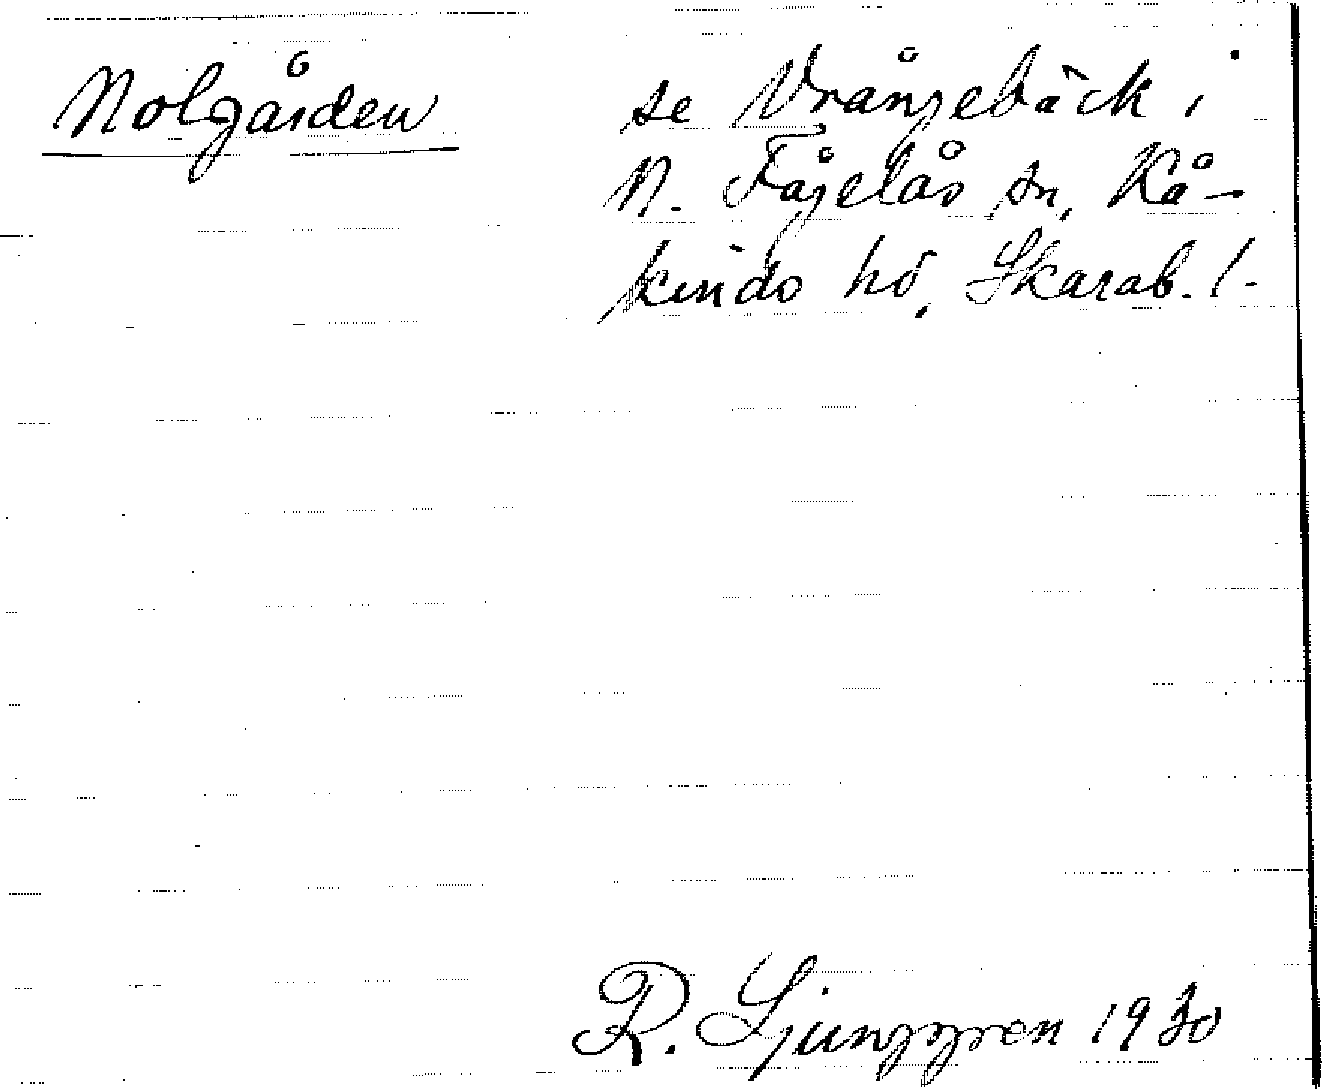 Nolgården se Vrångebäck i
N. Fågelås sn, Kå-
kinds hd, Skarab. l.
R. Ljunggren 1930